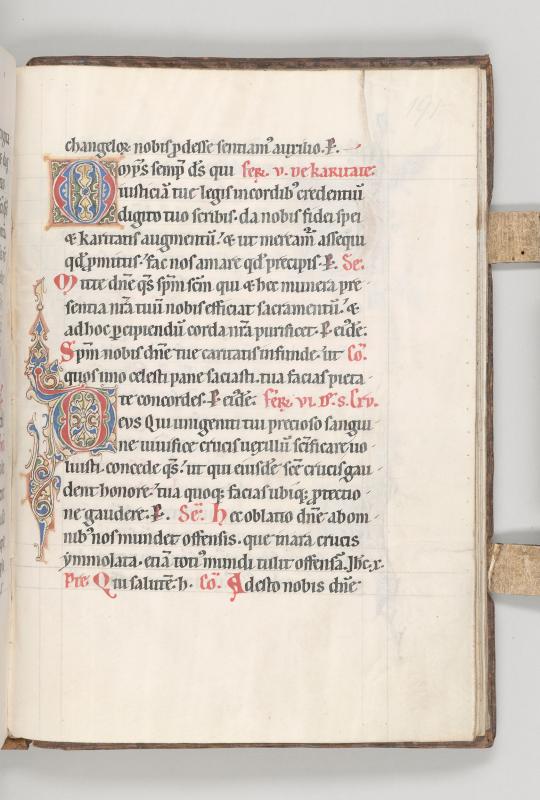 changelor nobis pdesse sentiam auxilio. P.
Omps semp ds qui fer. v. de karitate:
iusticiã tue legis in cordib credentiũ
digito tuo scribis. da nobis fidei spei
& karitatis augmentũ. & ut meream̃ assequi
qd pmittis. fac nos amare qd precipis. P. Se.
Mitte dñe qs spm scm qui & hec munera pre
sentia nrã tuũ nobis efficiat sacramentũ. &
ad hoc percipiendũ corda nrã purificet. P. eiusdẽ:
Spm nobis dñe tue caritatis infunde. ut Cõ.
quos uno celesti pane saciasti. tua facias pieta
te concordes. P. eiusdẽ: fer. vi. D. s. Crv.
Deus Qui unigeniti tui precioso sangui
ne uiuifice crucis uexillũ scificare uo
luisti. concede qs. ut qui eiusdẽ scẽ crucis gau
dent honore. tua quoq; facias ubiq; protectio
ne gaudere. P. Sẽ. Hec oblatio dñe ab om
nib nos mundet offensis. que in ara crucis
ymmolata. etiã toti mundi tulit offensã. Jhc. x.
Pre. Qui salutẽ. h. Cõ. Adesto nobis dñe